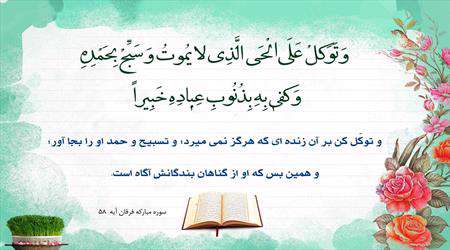 وَ تَوَکَلْ عَلَی الْحَی الَّذِی لا یَمُوتُ وَ سَبِّحْ بِحَمْدِهِ
وَ کَفی بِهِ بِذُنُوبِ عِبادِهِ خَبِیراً
و توکّل کن بر آن زنده ای که هرگز نمی میرد؛ و تسبیح و حمد او را بجا آور؛
و همین بس که او از گناهان بندگانش آگاه است
سوره مبارکه فرقان آیه ۵۸